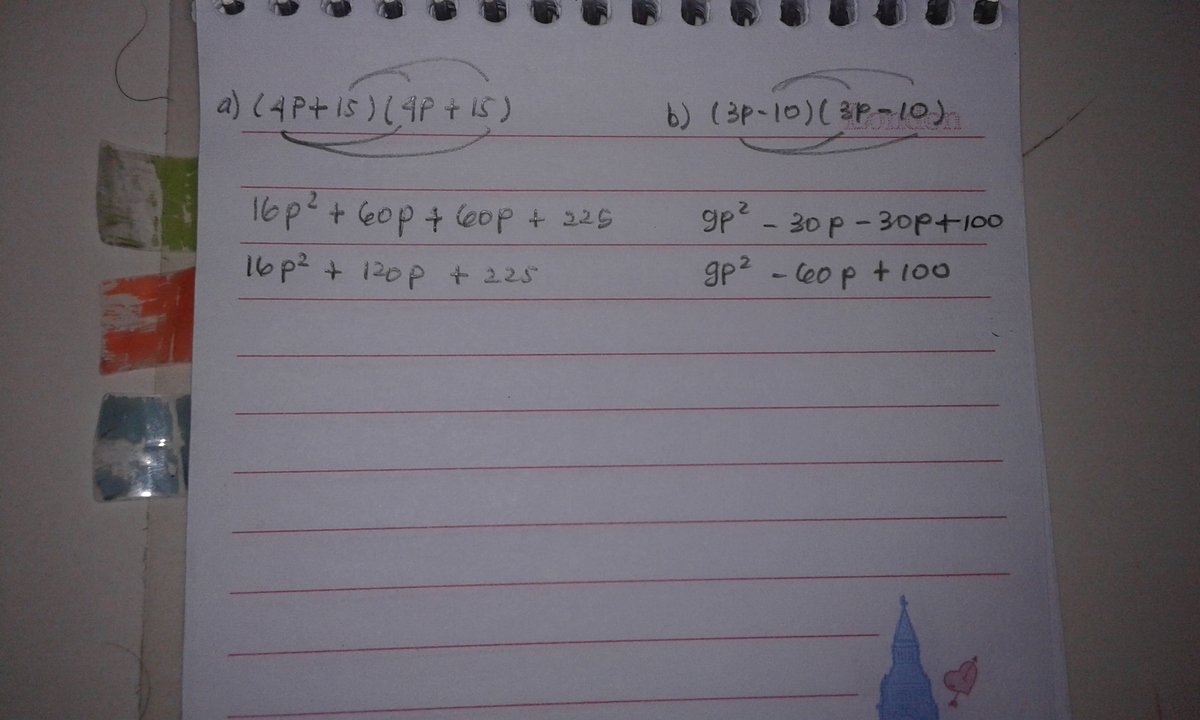 a) (4p+15)(4p+15)
16p² + 60p + 60p + 225
16p² + 120p + 225
b) (3p-10)(3p-10)
9p² - 30p - 30p+100
9p² - 60p + 100